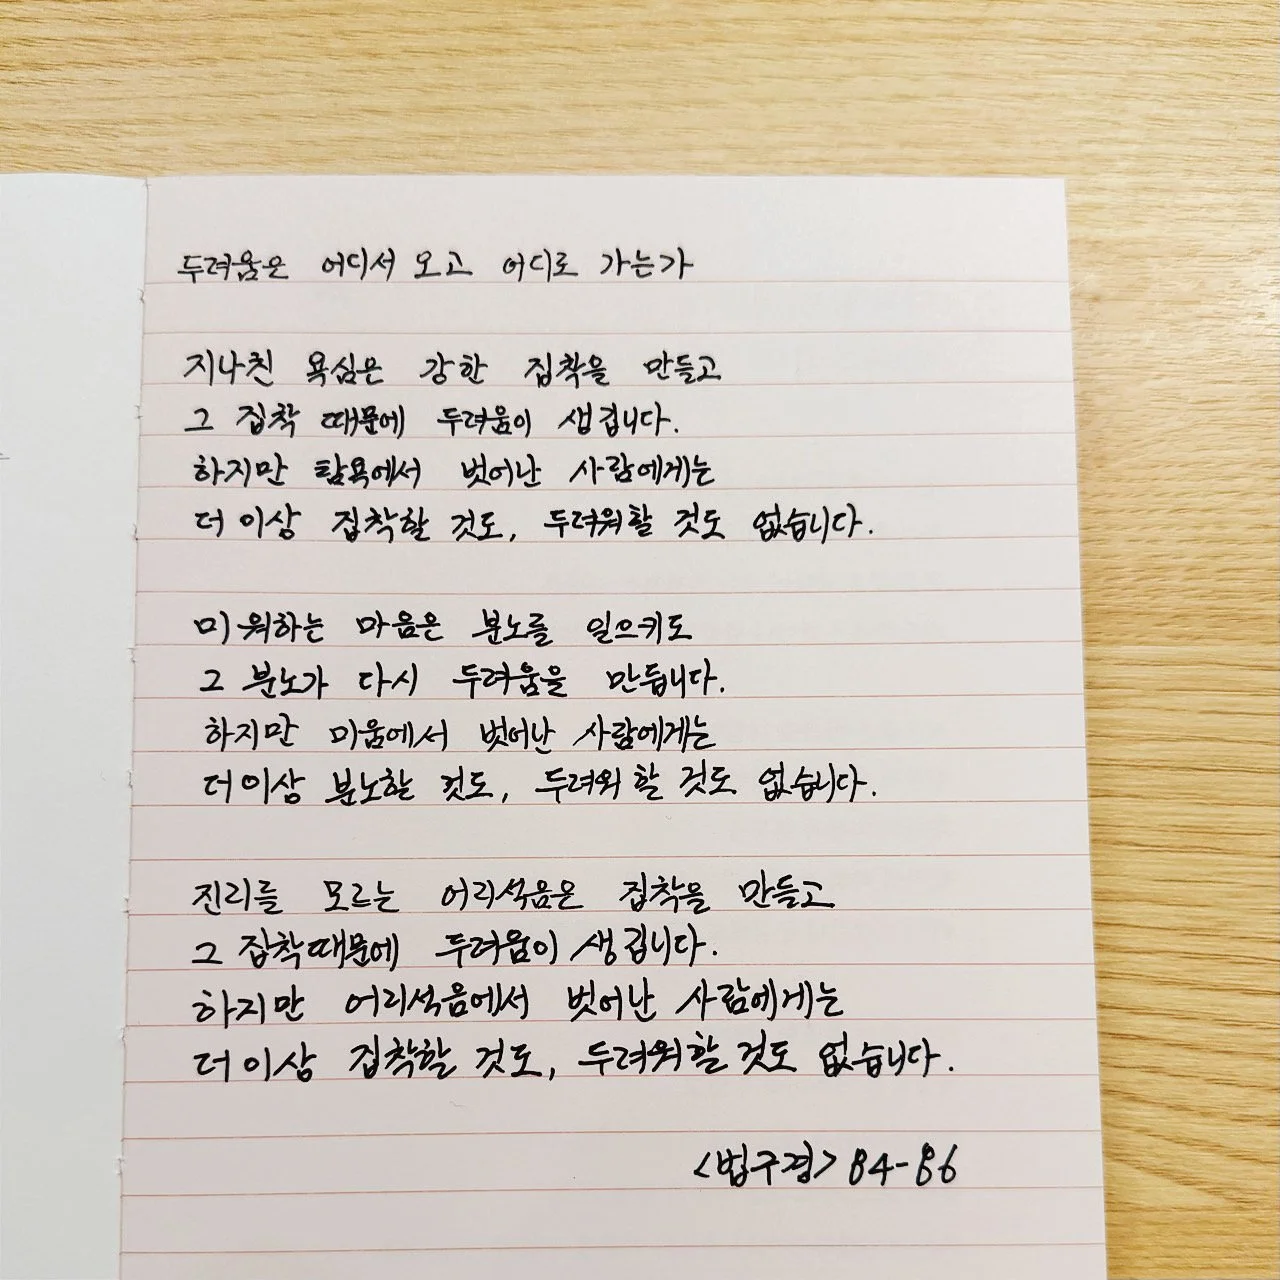 두려움은 어디서 오고 어디로 가는가
지나친 욕심은 강한 집착을 만들고
그 집착 때문에 두려움이 생깁니다.
하지만 탐욕에서 벗어난 사람에게는
더 이상 집착할 것도, 두려워할 것도 없습니다.
미워하는 마음은 분노를 일으키고
그 분노가 다시 두려움을 만듭니다.
하지만 미움에서 벗어난 사람에게는
더이상 분노할 것도, 두려워 할 것도 없습니다.
진리를 모르는 어리석음은 집착을 만들고
그 집착때문에 두려움이 생깁니다.
하지만 어리석음에서 벗어난 사람에게는
더이상 집착할 것도, 두려워할 것도 없습니다.
<법구경> 84-86